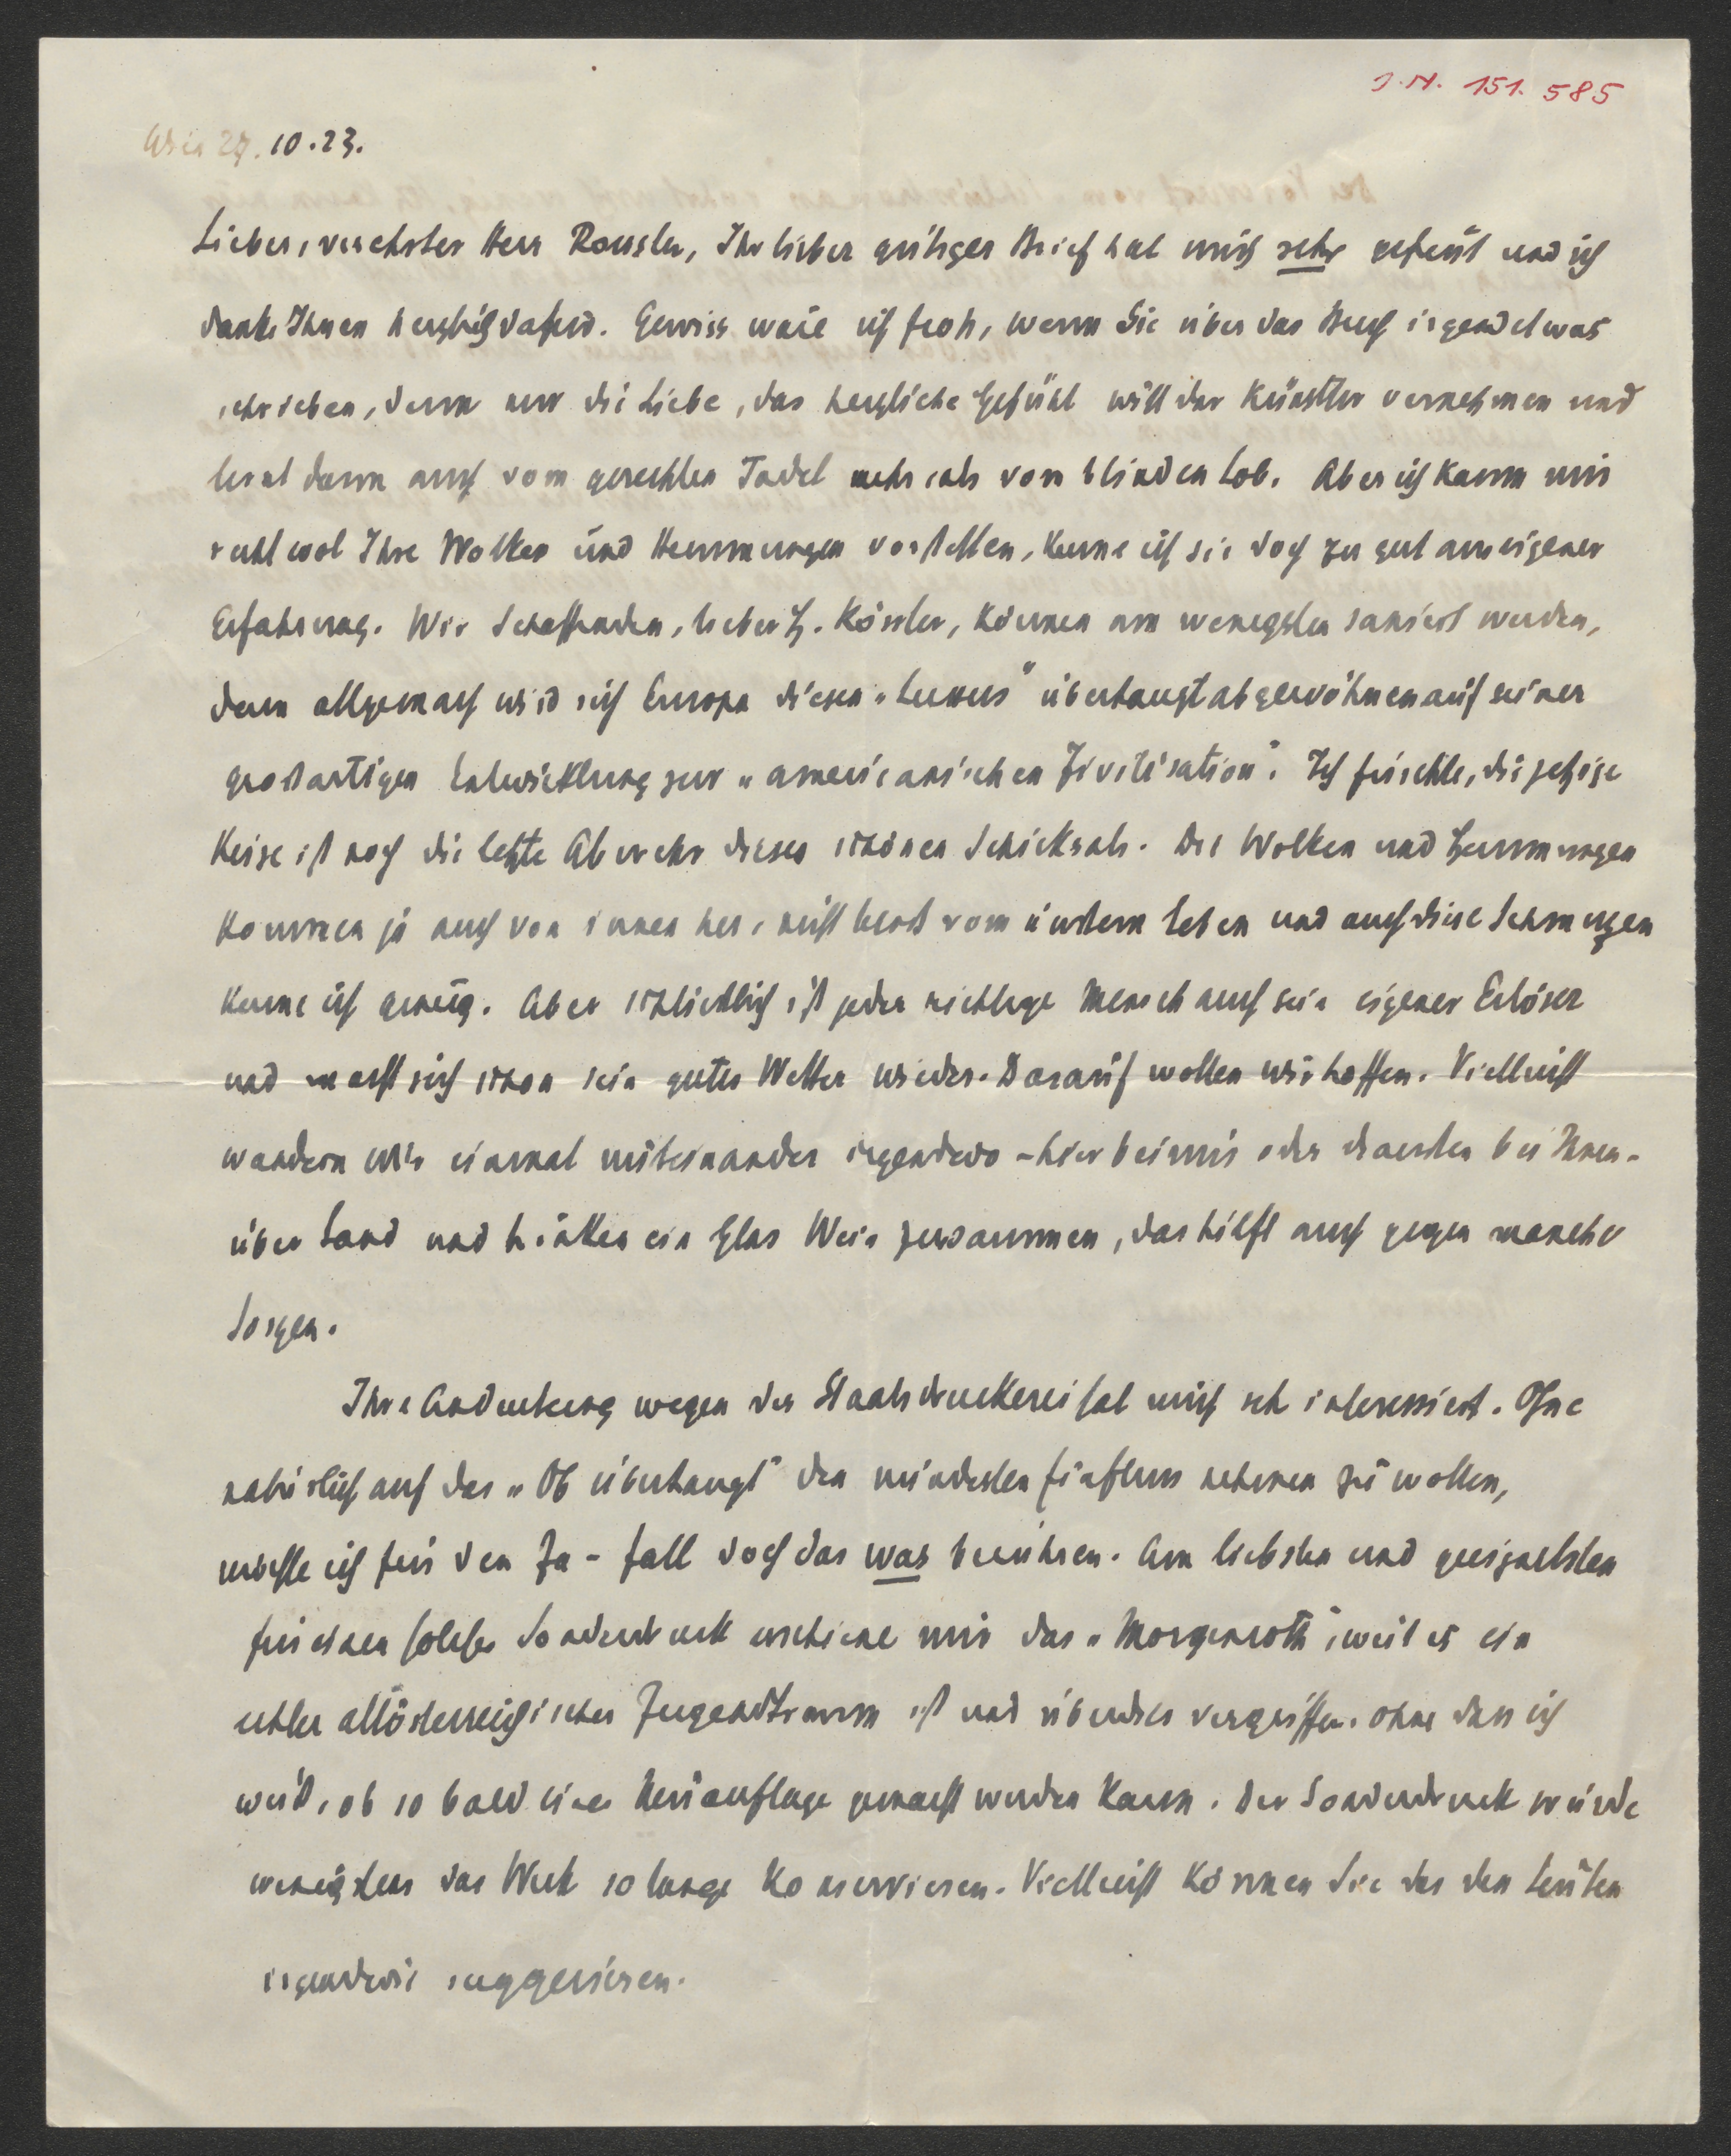 J.N. 151.585
Wien 27.10.23.
Lieber, verehrter Herr Roessler, Ihr lieber gütiger Brief hat mich sehr gefreut und ich
danke Ihnen herzlich dafür. Gewiss wäre ich froh, wenn Sie über das Buch irgendetwas
schrieben, denn nur die Liebe, das herzliche Gefühl will der Künstler vernehmen und
lernt dann auch vom gerechten Tadel mehr als vom blinden Lob. Aber ich kann mir
recht wol Ihre Wolken und Hemmungen vorstellen, kenne ich sie doch zu gut aus eigener
Erfahrung. Wir Schaffenden, lieber H. Rössler, können am wenigsten saniert werden,
denn allgemach wird sich Europa diesen „Luxus" überhaupt abgewöhnen auf seiner
großartigen Entwicklung zur „americanischen Zivilisation". Ich fürchte, die jetzige
Krise ist noch die letzte Abwehr dieses schönen Schicksals. Die Wolken und Hemmungen
kommen ja auch von innen her, nicht bloß vom äußern Leben und auch diese Schmerzen
kenne ich genug. Aber schließlich ist jeder richtige Mensch auch sein eigener Erlöser
und macht sich schon sein gutes Wetter wieder. Darauf wollen wir hoffen. Vielleicht
wandern wir einmal miteinander irgendwo – hier bei mir oder draußen bei Ihnen –
über Land und trinken ein Glas Wein zusammen, das hilft auch gegen manche
Sorgen.
Ihre Andeutung wegen der Staatsdruckerei hat mich sehr interessiert. Ohne
natürlich auf das „Ob überhaupt" den mindesten Einfluss nehmen zu wollen,
möchte ich für den Ja-Fall doch das was berühren. Am liebsten und geeignetsten
für einen solchen Sonderdruck erschiene mir das „Morgenroth", weil es ein
echter altösterreichischer Jugendtraum ist und überdies vergriffen, ohne dass ich
weiß, ob so bald eine Neuauflage gemacht werden kann. Der Sonderdruck würde
wenigstens das Werk so lange konservieren. Vielleicht können Sie das den Leuten
irgendwie suggerieren.